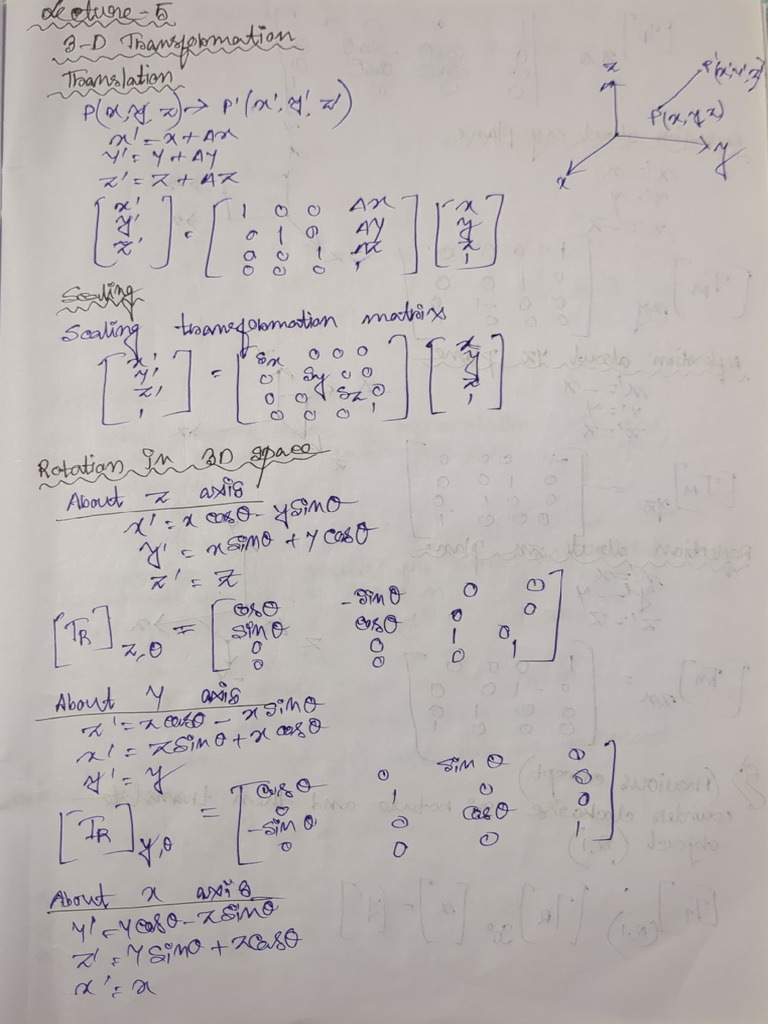 Lecture-5
3-D Transformation
Translation
P(x,y,z) → P'(x',y',z')
x' = x + Δx
y' = y + Δy
z' = z + Δz
[x' y' z'] = [1 0 0 Δx
0 1 0 Δy
0 0 1 Δz
0 0 0 1] [x y z 1]
z
P'(x',y',z')
P(x,y,z)
y
x
Scaling
Scaling transformation matrix
[x' y' z' 1] = [Sx 0 0 0
0 Sy 0 0
0 0 Sz 0
0 0 0 1] [x y z 1]
Rotation in 3D space
About z axis
x' = x cosθ - y sinθ
y' = x sinθ + y cosθ
z' = z
[TR]z,θ = [cosθ -sinθ 0 0
sinθ cosθ 0 0
0 0 1 0
0 0 0 1]
About y axis
z' = z cosθ - x sinθ
x' = z sinθ + x cosθ
y' = y
[TR]y,θ = [cosθ 0 sinθ 0
0 1 0 0
-sinθ 0 cosθ 0
0 0 0 1]
About x axis
y' = y cosθ - z sinθ
z' = y sinθ + z cosθ
x' = x